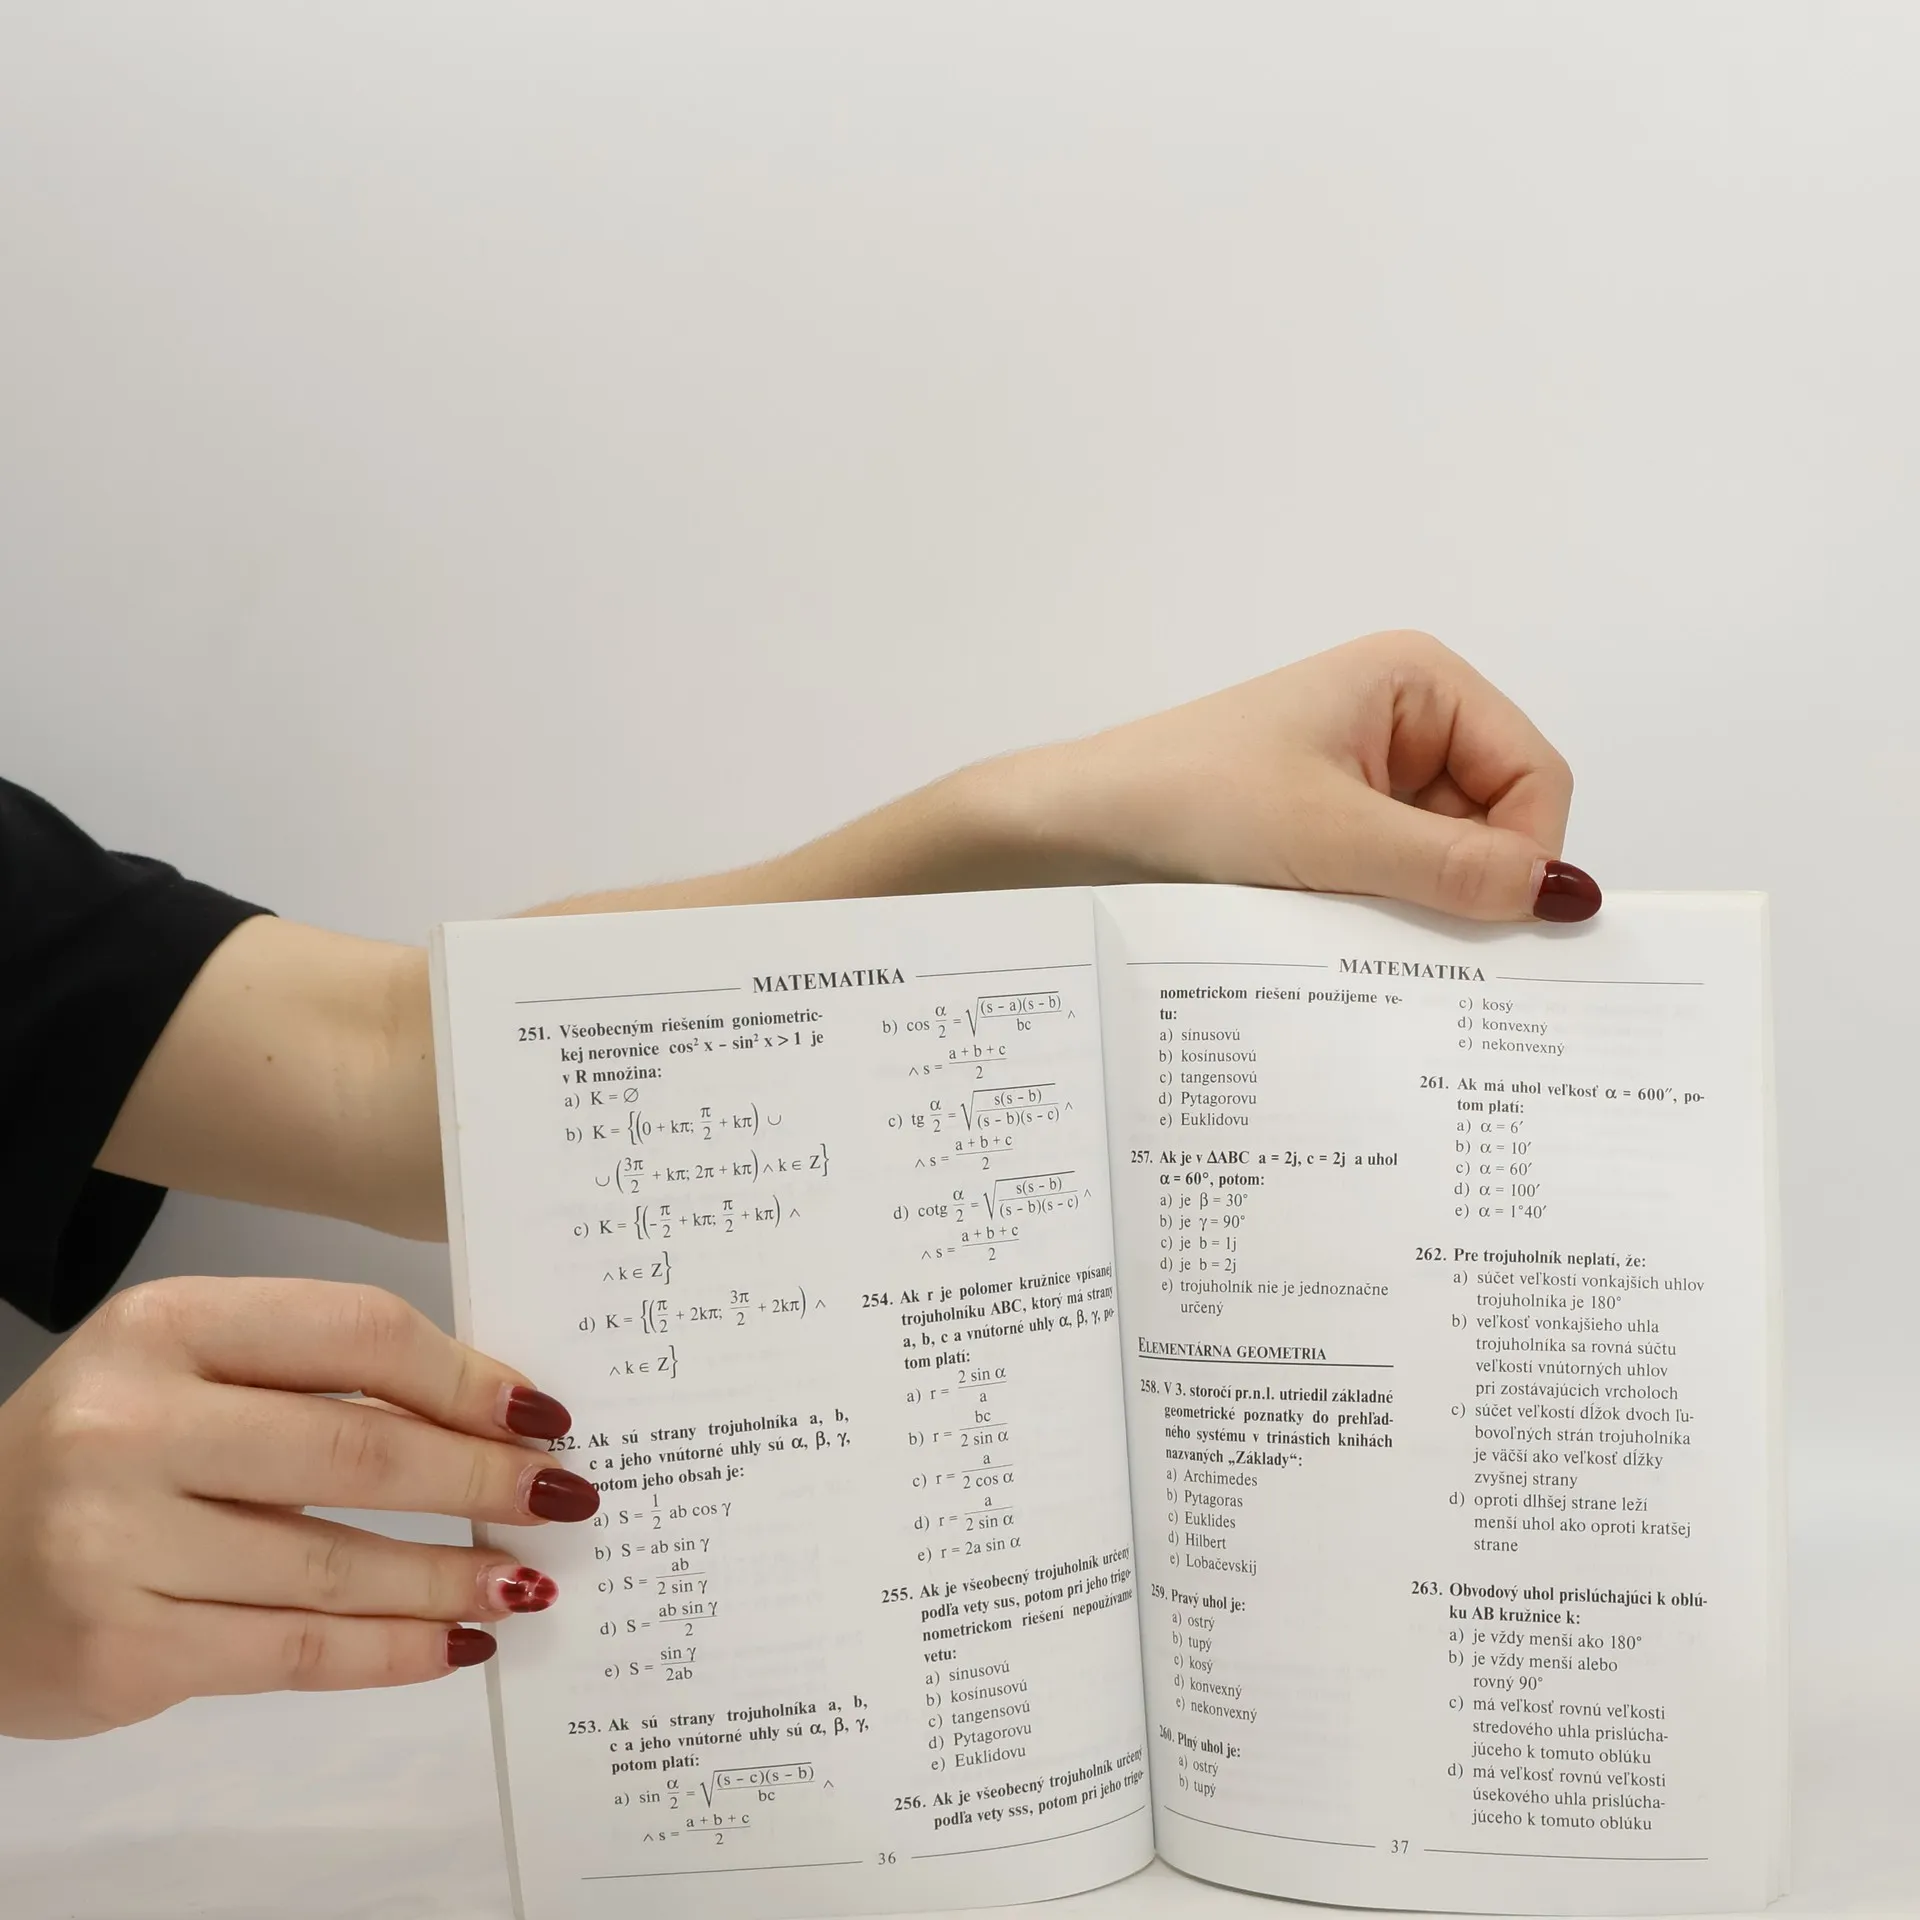 MATEMATIKA
251. Všeobecným riešením goniometric-
kej nerovnice cos² x – sin² x > 1 je
v R množina:
a) K = ∅
b) K = {(0 + kπ; π/2 + kπ) ∪
∪ (3π/2 + kπ; 2π + kπ) ∧ k ∈ Z}
c) K = {(-π/2 + kπ; π/2 + kπ) ∧
∧ k ∈ Z}
d) K = {(π/2 + 2kπ; 3π/2 + 2kπ) ∧
∧ k ∈ Z}
252. Ak sú strany trojuholníka a, b,
c a jeho vnútorné uhly sú α, β, γ,
potom jeho obsah je:
a) S = 1/2 ab cos γ
b) S = ab sin γ
c) S = ab/(2 sin γ)
d) S = (ab sin γ)/2
e) S = sin γ/2ab
253. Ak sú strany trojuholníka a, b,
c a jeho vnútorné uhly sú α, β, γ,
potom platí:
a) sin α/2 = √((s – c)(s – b)/bc) ∧
∧ s = (a + b + c)/2
b) cos α/2 = √((s – a)(s – b)/bc) ∧
∧ s = (a + b + c)/2
c) tg α/2 = √(s(s – b)/(s – b)(s – c)) ∧
∧ s = (a + b + c)/2
d) cotg α/2 = √(s(s – b)/(s – b)(s – c)) ∧
∧ s = (a + b + c)/2
254. Ak r je polomer kružnice vpísanej
trojuholníku ABC, ktorý má strany
a, b, c a vnútorné uhly α, β, γ, po-
tom platí:
a) r = 2 sin α/a
b) r = bc/(2 sin α)
c) r = a/(2 cos α)
d) r = a/(2 sin α)
e) r = 2a sin α
255. Ak je všeobecný trojuholník určený
podľa vety sus, potom pri jeho trigo-
nometrickom riešení nepoužívame
vetu:
a) sínusovú
b) kosínusovú
c) tangensovú
d) Pytagorovu
e) Euklidovu
256. Ak je všeobecný trojuholník určený
podľa vety sss, potom pri jeho trigo-
36
MATEMATIKA
nometrickom riešení použijeme ve-
tu:
a) sínusovú
b) kosínusovú
c) tangensovú
d) Pytagorovu
e) Euklidovu
257. Ak je v ΔABC a = 2j, c = 2j a uhol
α = 60°, potom:
a) je β = 30°
b) je γ = 90°
c) je b = 1j
d) je b = 2j
e) trojuholník nie je jednoznačne
určený
ELEMENTÁRNA GEOMETRIA
258. V 3. storočí pr.n.l. utriedil základné
geometrické poznatky do prehľad-
ného systému v trinástich knihách
nazvaných „Základy“:
a) Archimedes
b) Pytagoras
c) Euklides
d) Hilbert
e) Lobačevskij
259. Pravý uhol je:
a) ostrý
b) tupý
c) kosý
d) konvexný
e) nekonvexný
260. Plný uhol je:
a) ostrý
b) tupý
c) kosý
d) konvexný
e) nekonvexný
261. Ak má uhol veľkosť α = 600″, po-
tom platí:
a) α = 6′
b) α = 10′
c) α = 60′
d) α = 100′
e) α = 1°40′
262. Pre trojuholník neplatí, že:
a) súčet veľkostí vonkajších uhlov
trojuholníka je 180°
b) veľkosť vonkajšieho uhla
trojuholníka sa rovná súčtu
veľkostí vnútorných uhlov
pri zostávajúcich vrcholoch
c) súčet veľkostí dĺžok dvoch ľu-
bovoľných strán trojuholníka
je väčší ako veľkosť dĺžky
zvyšnej strany
d) oproti dlhšej strane leží
menší uhol ako oproti kratšej
strane
263. Obvodový uhol prislúchajúci k oblú-
ku AB kružnice k:
a) je vždy menší ako 180°
b) je vždy menší alebo
rovný 90°
c) má veľkosť rovnú veľkosti
stredového uhla prislúcha-
júceho k tomuto oblúku
d) má veľkosť rovnú veľkosti
úsekového uhla prislúcha-
júceho k tomuto oblúku
37